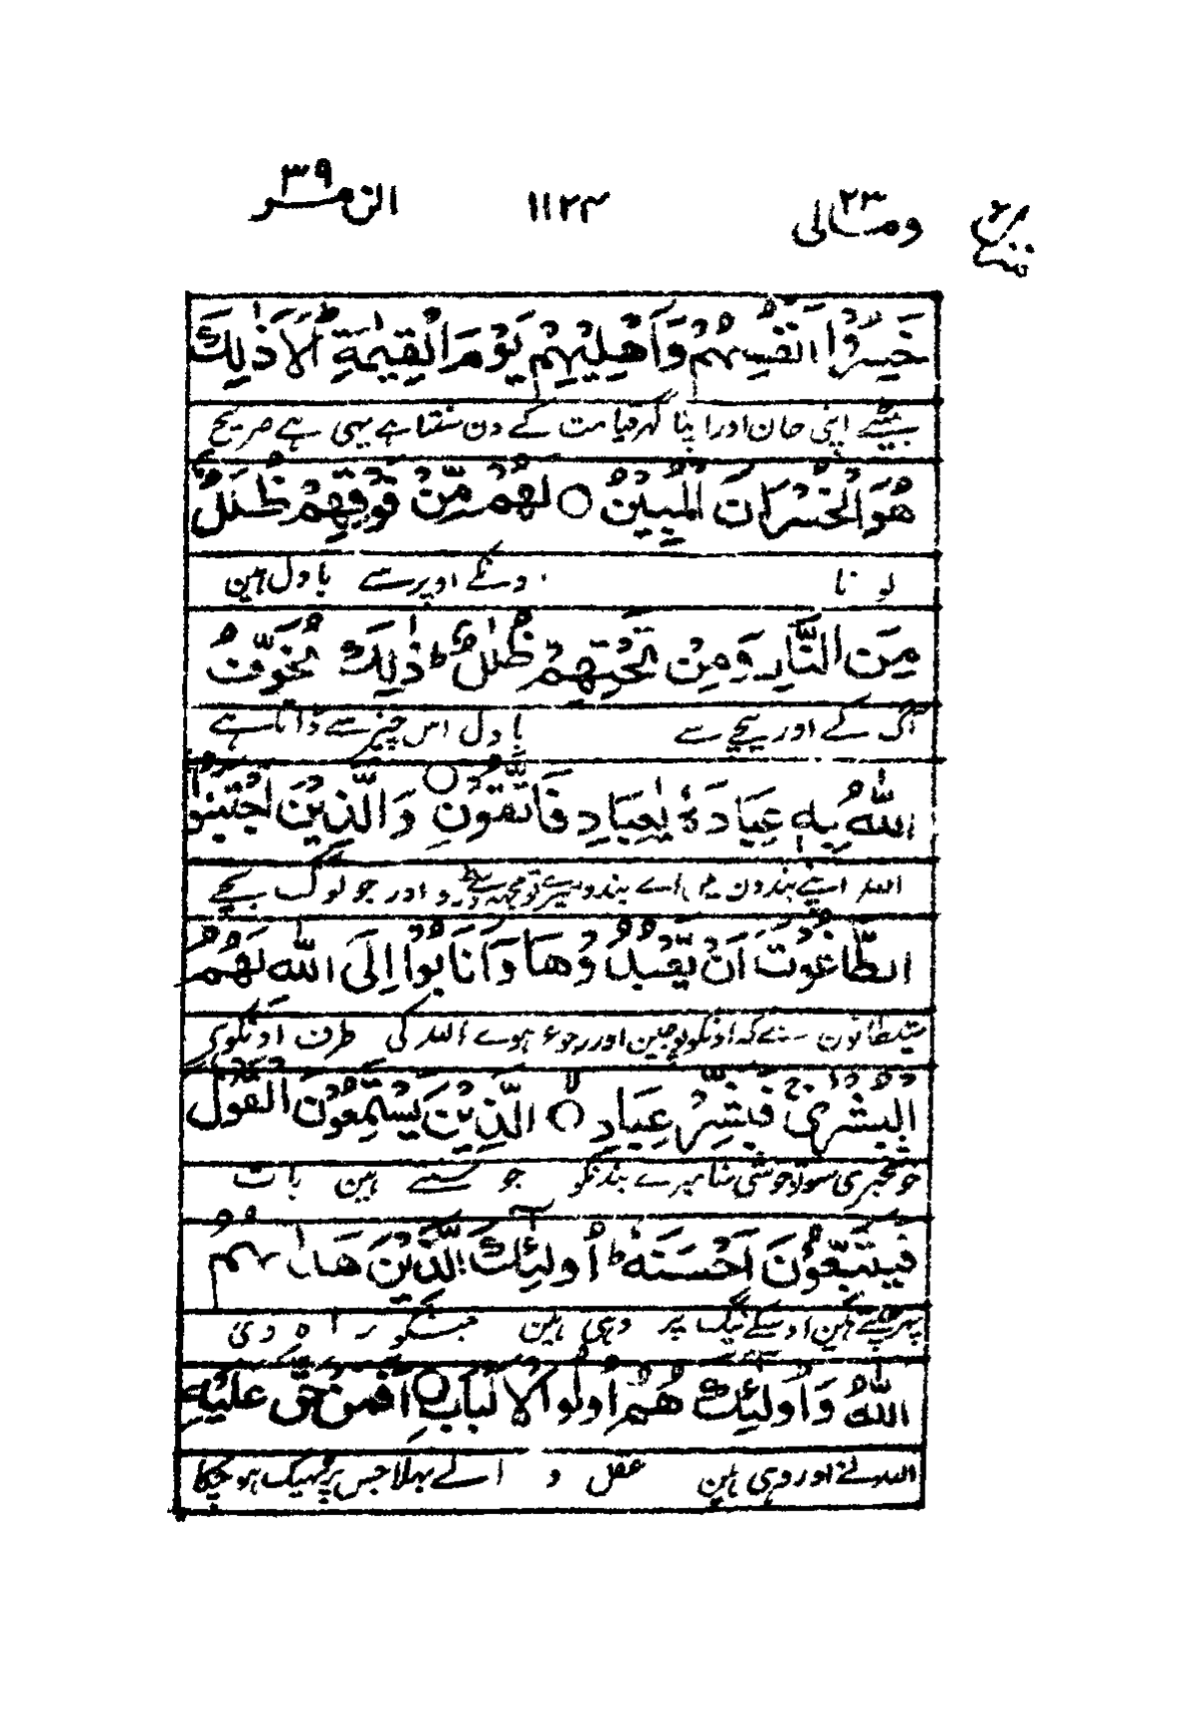 ومالی ٢٣ ١١٢٤ الزمر ٣٩
خَسِرُوْا اَنْفُسَهُمْ وَاَهْلِيْهِمْ يَوْمَ الْقِيٰمَةِ ؕ اَلَا ذٰلِكَ
بیٹھے اپنی جان اور اپنا گھر قیامت کے دن سنتا ہے یہی ہے صریح
هُوَ الْخُسْرَانُ الْمُبِيْنُ ○ لَهُمْ مِّنْ فَوْقِهِمْ ظُلَلٌ
لوٹا ونکے اوپر سے بادل ہین
مِنَ النَّارِ وَمِنْ تَحْتِهِمْ ظُلَلٌ ؕ ذٰلِكَ يُخَوِّفُ
آگ کے اور نیچے سے بادل اس چیز سے ڈراتا ہے
اللّٰهُ بِهٖ عِبَادَهٗ يٰعِبَادِ فَاتَّقُوْنِ ○ وَالَّذِيْنَ اجْتَنَبُوا
اللہ اپنے بندون اے بندو میرے تو مجھ سے ڈرو اور جو لوگ بچے
الطَّاغُوْتَ اَنْ يَّعْبُدُوْهَا وَاَنَابُوْا اِلَى اللّٰهِ لَهُمُ
شیطانون سے کہ اونکو پوجین اور رجوع ہوے اللہ کی طرف اونکو ہی
الْبُشْرٰىۚ فَبَشِّرْ عِبَادِ ○ الَّذِيْنَ يَسْتَمِعُوْنَ الْقَوْلَ
خوشخبری سو تو خوشی سنا میرے بندونکو جو سنتے ہین بات
فَيَتَّبِعُوْنَ اَحْسَنَهٗ ؕ اُولٰٓئِكَ الَّذِيْنَ هَدٰىهُمُ
پھر چلتے ہین اوسکے نیک پر وہی ہین جنکو راہ دی
اللّٰهُ وَاُولٰٓئِكَ هُمْ اُولُوا الْاَلْبَابِ ○ اَفَمَنْ حَقَّ عَلَيْهِ
اللہ نے اور وہی ہین عقل والے بھلا جس پر ٹھیک ہو چکا